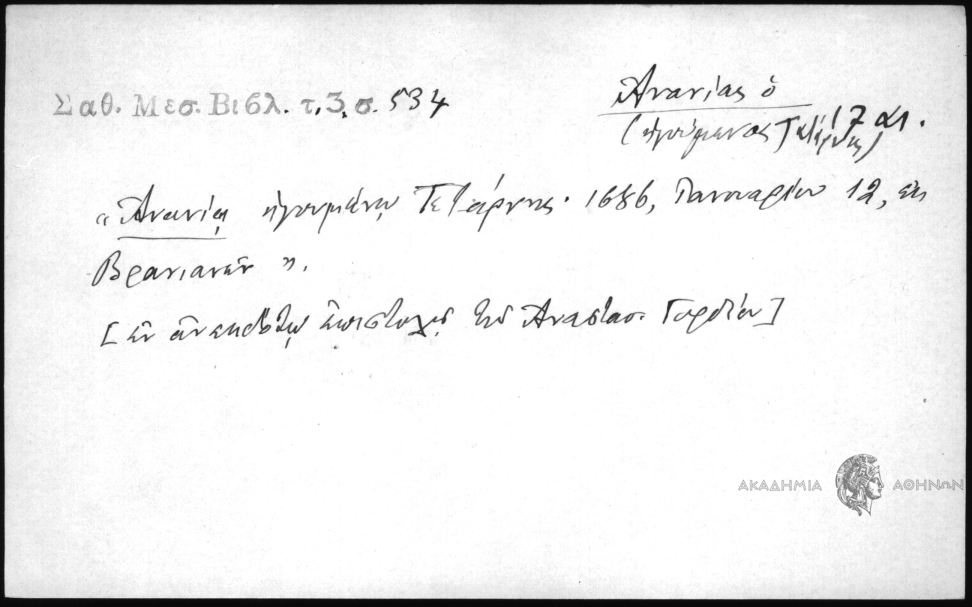 Σαθ. Μεσ. Βιβλ. τ. 3. σ. 534
Ἀνανίας ὁ
(ἡγούμενος Τατάρνης) 17 αι.
"Ἀνανίᾳ ἡγουμένῳ Τετάρνης. 1686, Ἰανουαρίου 12, ἐκ
Βρανιανῶν".
[ἐν ἀνεκδότῳ ἐπιστολῇ τοῦ Ἀναστασ. Γορδίου]
ΑΚΑΔΗΜΙΑ ΑΘΗΝΩΝ